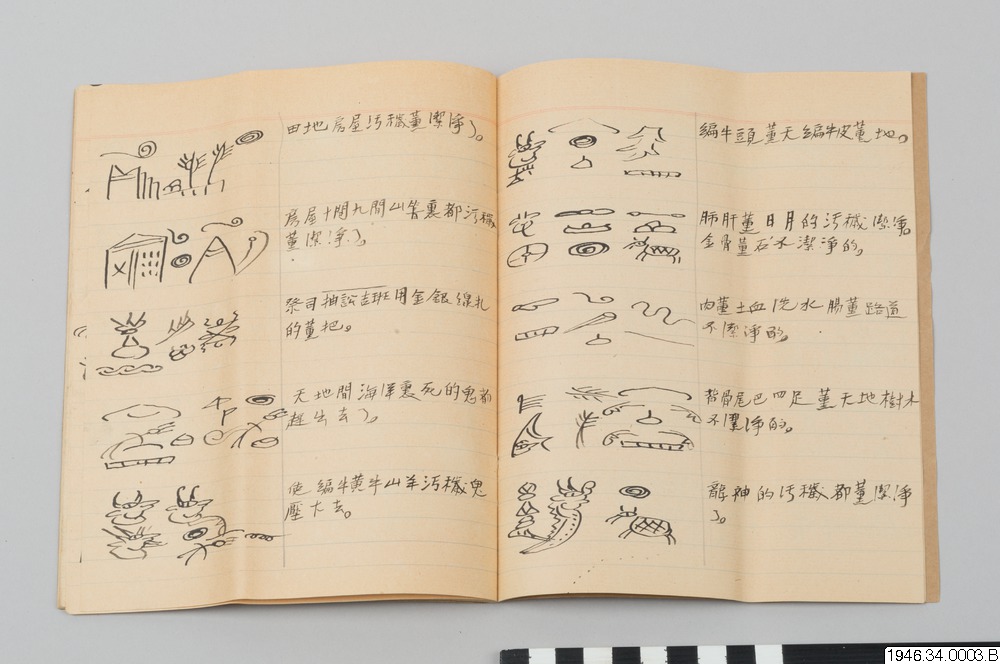 田地房屋汚穢薰潔淨了。
房屋十間九間山箐裏都汚穢
薰潔淨了。
祭司抽訟吉班用金銀線扎
的薰把。
天地間海洋裏死的鬼都
趕出去了。
使編牛黄牛山羊汚穢鬼
壓大去。
編牛頭薰天編牛皮薰地。
肺肝薰日月的汚穢潔淨。
金骨薰石水潔淨的。
肉薰土血洗水腸薰路道
不潔淨的。
背骨尾巴四足薰天地樹木
不潔淨的。
龍神的汚穢都薰潔淨
了。
1946.34.0003.B